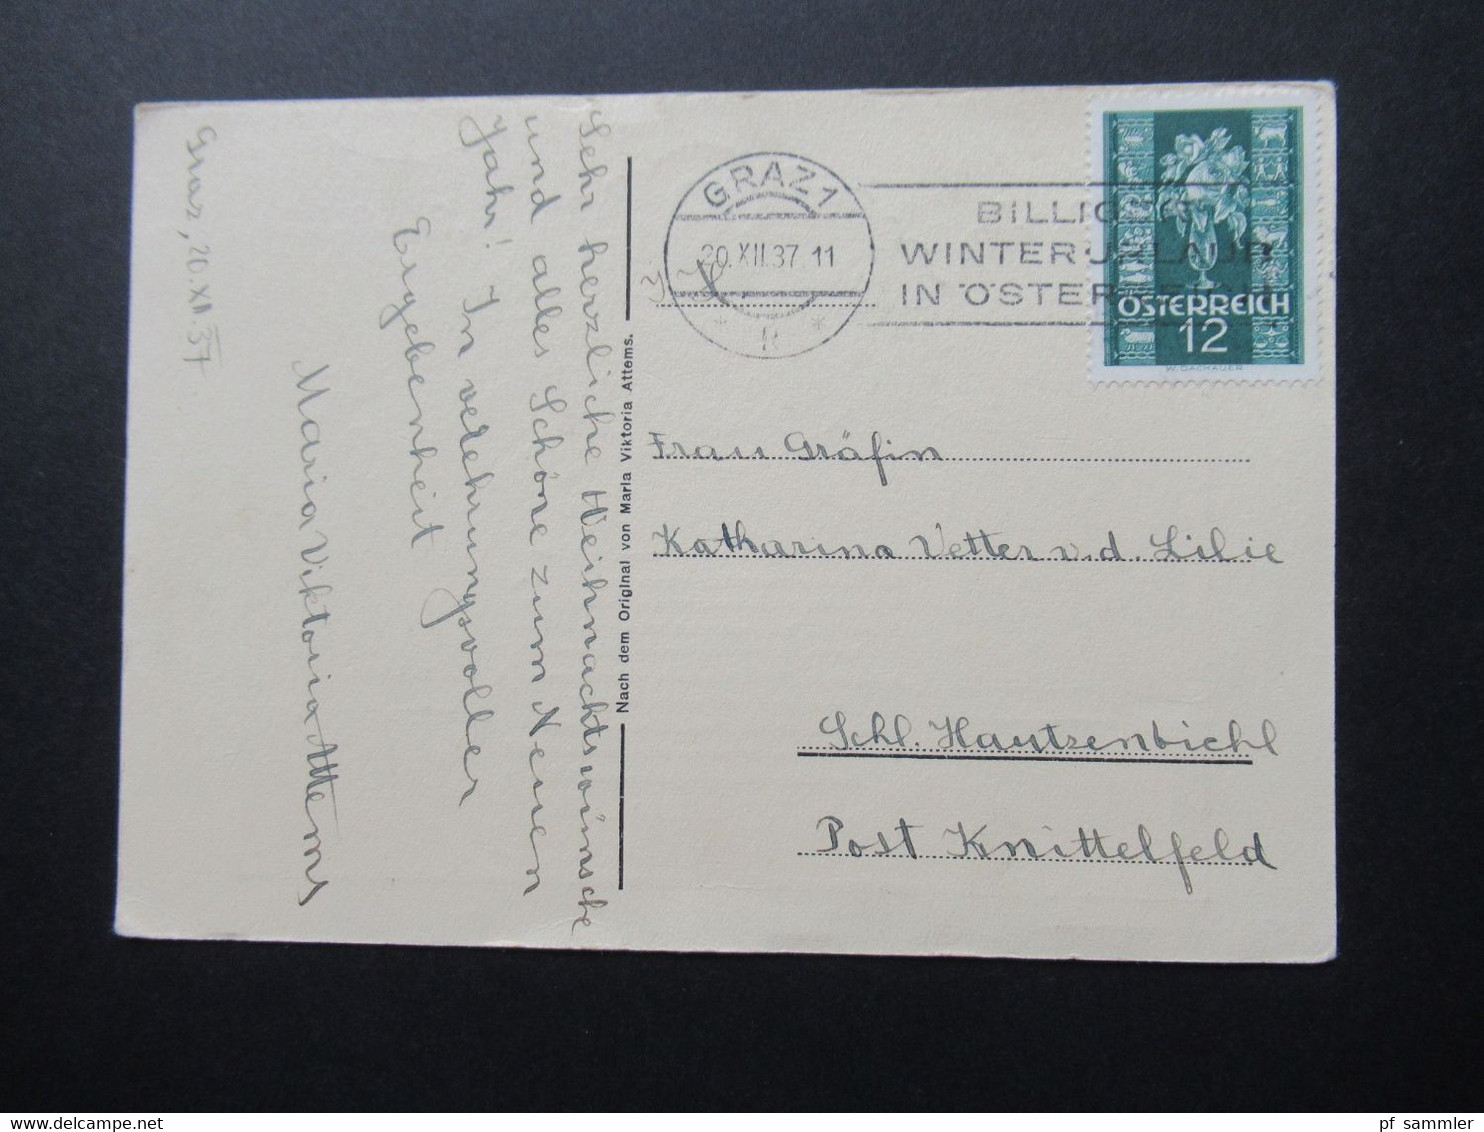 Graz, 20. XII. 37
Sehr herzliche Weihnachtswünsche
und alles Schöne zum Neuen
Jahr! In verehrungsvoller
Ergebenheit
Maria Viktoria Attems
Nach dem Original von Maria Viktoria Attems.
GRAZ 1
20.XII.37. 11
* R *
BILLIGER
WINTERURLAUB
IN ÖSTERREICH
ÖSTERREICH
12
W. DACHAUER
Frau Gräfin
Katharina Vetter v. d. Lilie
Schl. Hautzenbichl
Post Knittelfeld
pf_sammler